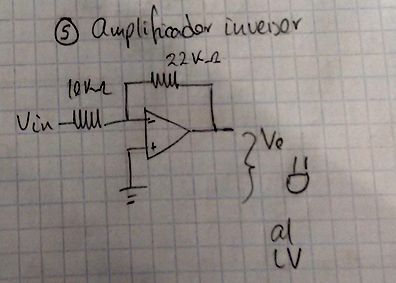 ⑤ Amplificador inversor
22KΩ
10KΩ
Vin
-
+
Vo
al
LV